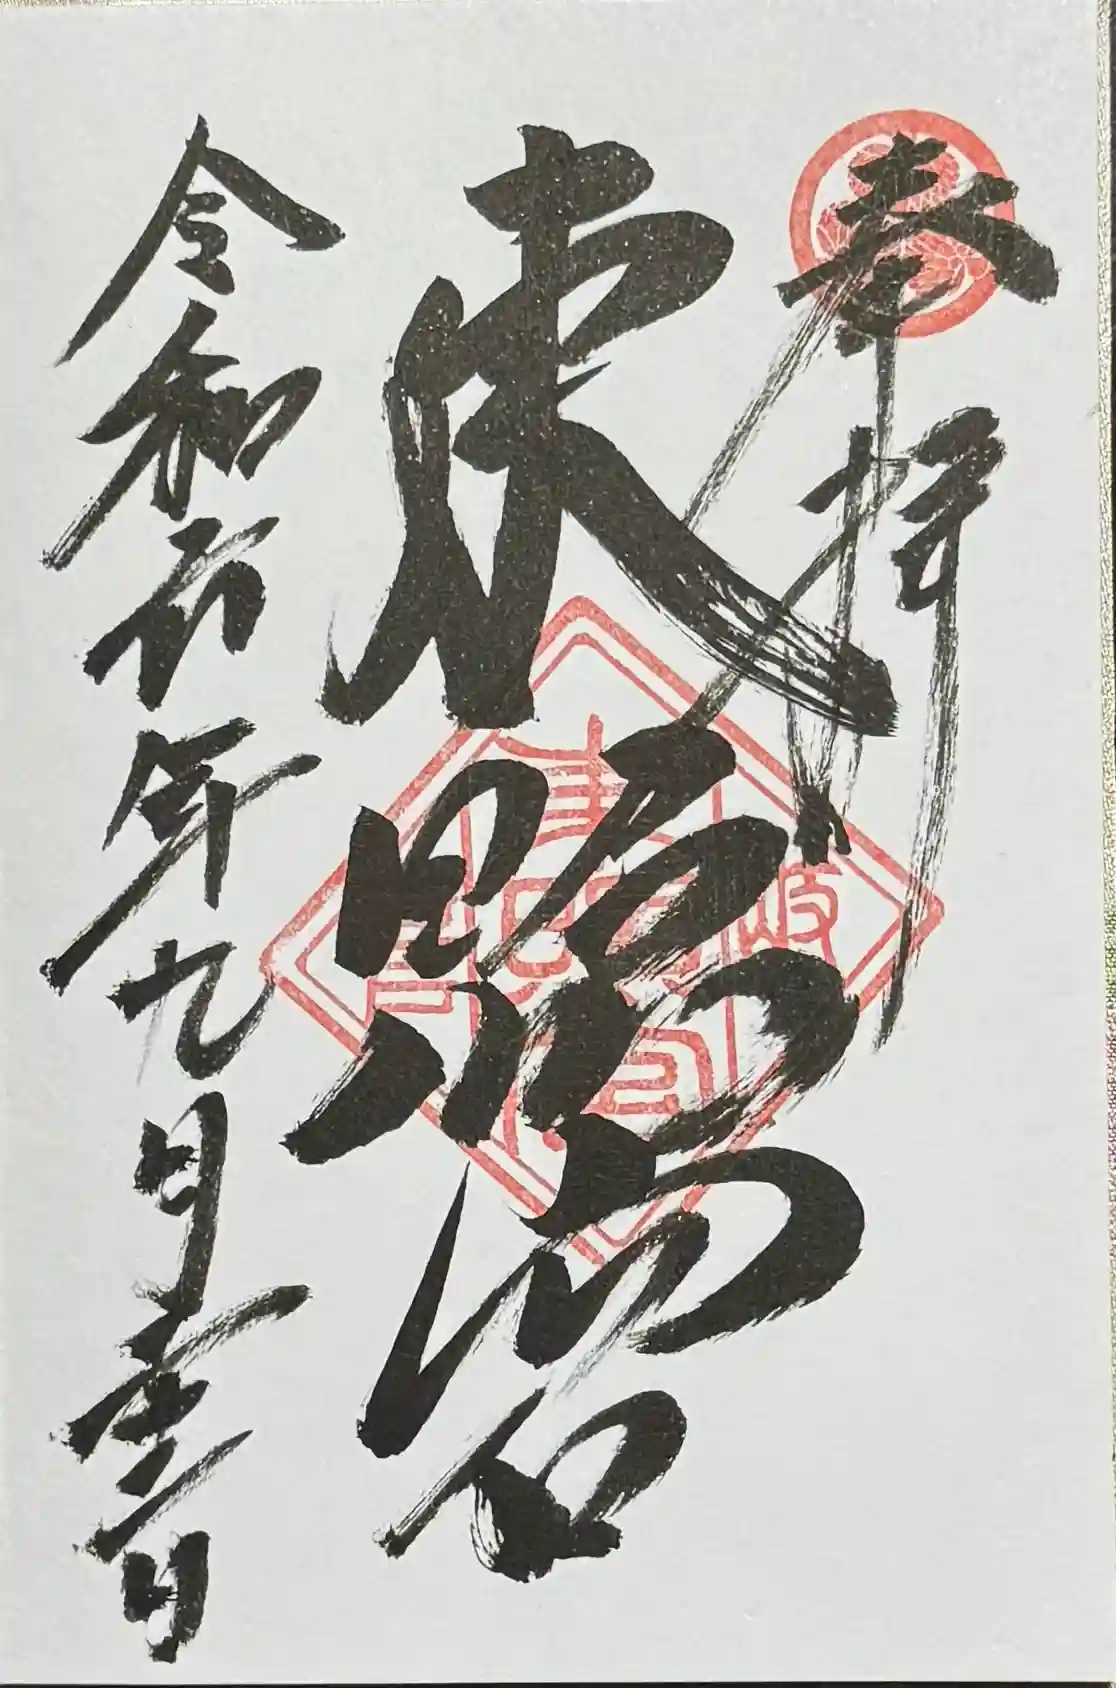 奉拝
東照宮
令和六年九月日